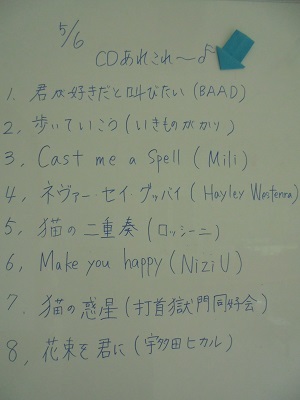 5/6
CDあれこれ〜♪
1. 君が好きだと叫びたい (BAAD)
2, 歩いていこう (いきものがかり)
3, Cast me a spell (Mili)
4, ネヴァー・セイ・グッバイ (Hayley Westenra)
5, 猫の二重奏 (ロッシーニ)
6, Make you happy (NiziU)
7, 猫の惑星 (打首獄門同好会)
8, 花束を君に (宇多田ヒカル)